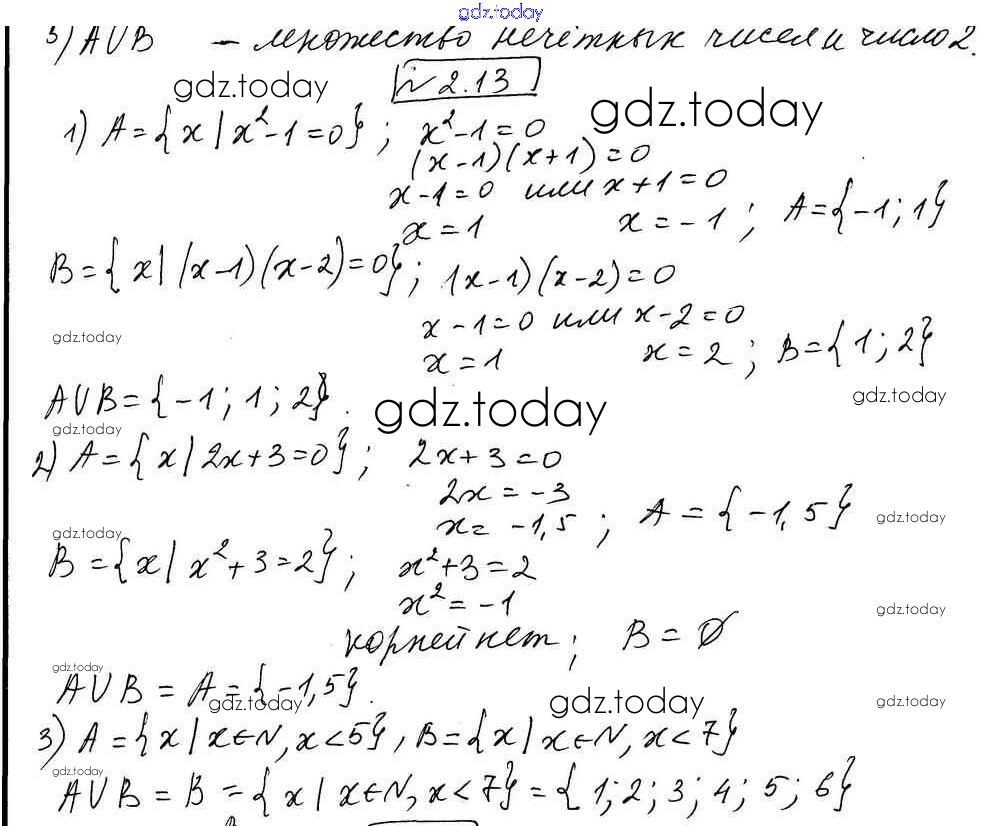 gdz.today
3) A∪B – множество нечётных чисел и число 2.
gdz.today
№ 2.13
gdz.today
1) A={x|x²-1=0}; x²-1=0
(x-1)(x+1)=0
x-1=0 или x+1=0
x=1 x=-1; A={-1;1}
B={x|(x-1)(x-2)=0}; (x-1)(x-2)=0
x-1=0 или x-2=0
gdz.today
x=1 x=2; B={1;2}
A∪B={-1;1;2}.
gdz.today
gdz.today
gdz.today
2) A={x|2x+3=0}; 2x+3=0
2x=-3
x=-1,5; A={-1,5}
gdz.today
gdz.today
B={x|x²+3=2}; x²+3=2
x²=-1
gdz.today
корней нет; B=∅
gdz.today
A∪B=A={-1,5}.
gdz.today
gdz.today
gdz.today
3) A={x|x∈N, x<5}, B={x|x∈N, x<7}
gdz.today
A∪B=B={x|x∈N, x<7}={1;2;3;4;5;6}